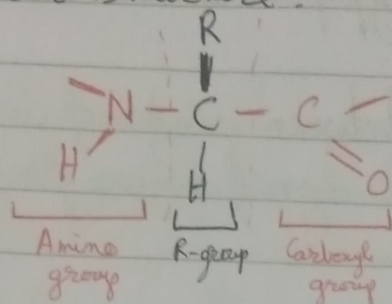 R
N - C - C
H
H
O
Amino
group
R-group
Carboxyl
group